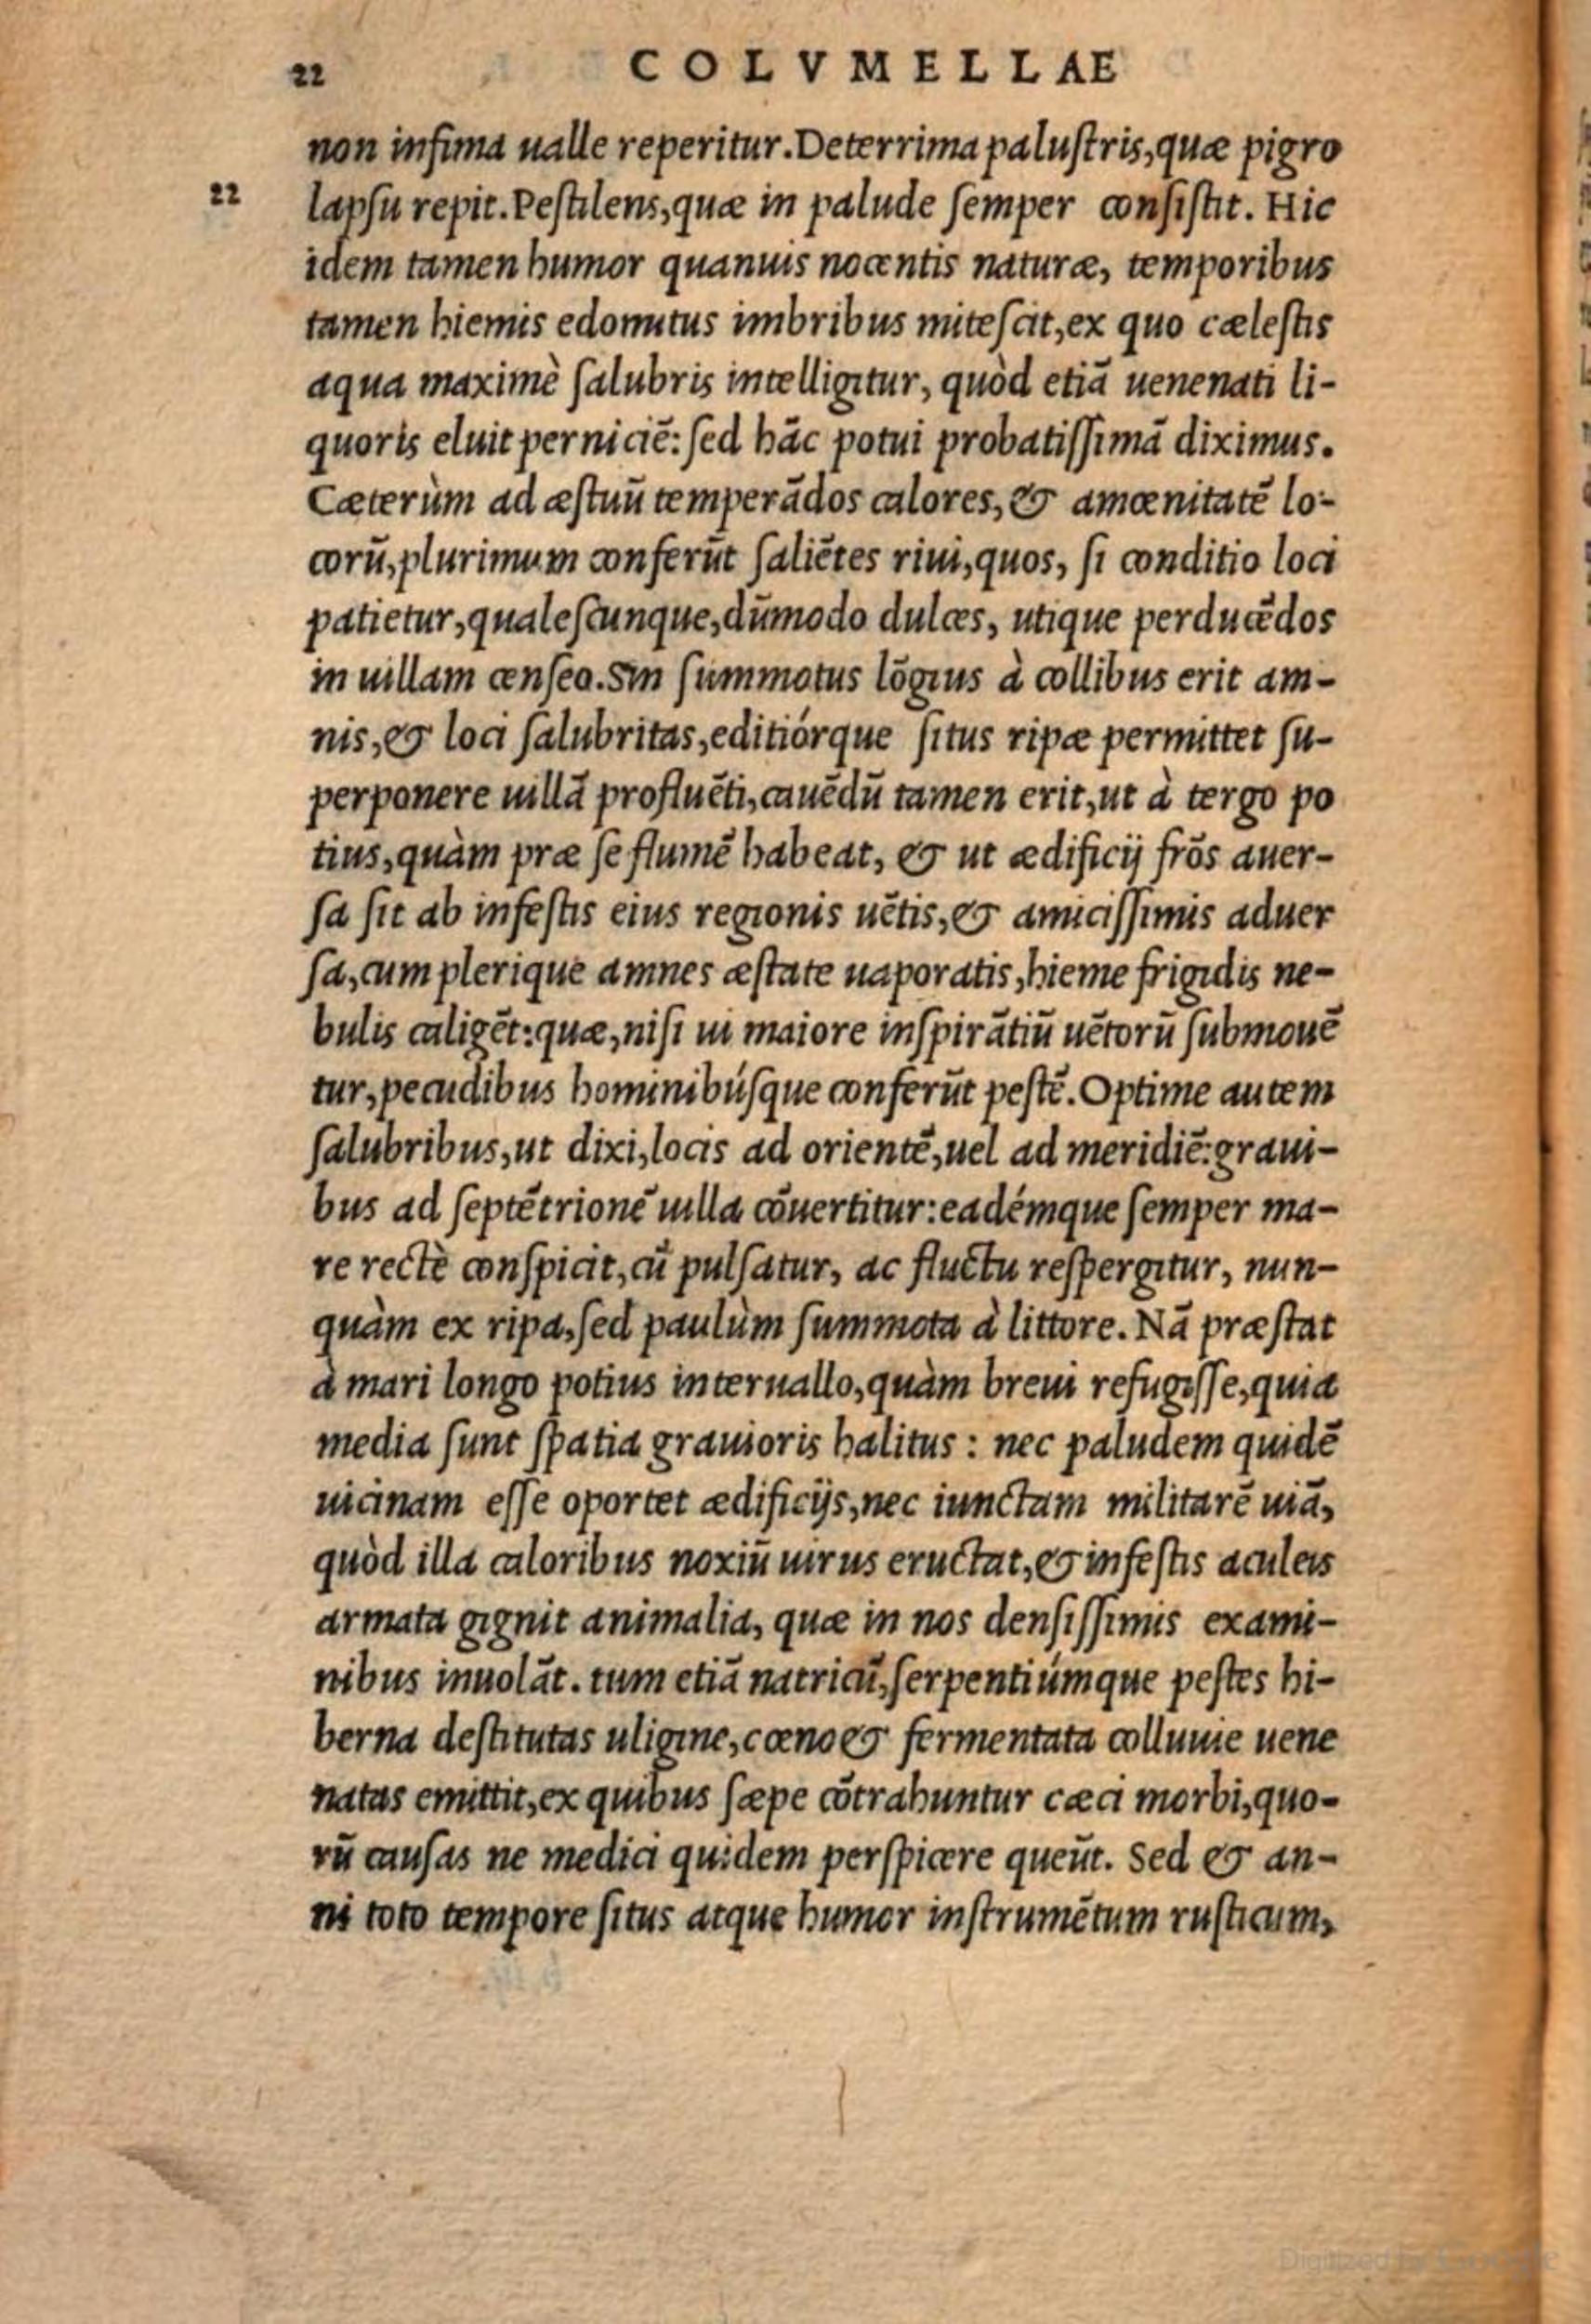 22 COLVMELLAE
non infima ualle reperitur. Deterrima palustris, quæ pigro
22 lapsu repit. Pestilens, quæ in palude semper consistit. Hic
idem tamen humor quanuis nocentis naturæ, temporibus
tamen hiemis edomitus imbribus mitescit, ex quo cælestis
aqua maximè salubris intelligitur, quòd etiã uenenati li-
quoris eluit perniciẽ: sed hãc potui probatissimã diximus.
Cæterùm ad æstuũ temperãdos calores, & amœnitatẽ lo-
corũ, plurimum conferũt saliẽtes riui, quos, si conditio loci
patietur, qualescunque, dũmodo dulces, utique perducẽdos
in uillam censeo. Sin summotus lõgius à collibus erit am-
nis, & loci salubritas, editiórque situs ripæ permittet su-
perponere uillã profluẽti, cauẽdũ tamen erit, ut à tergo po
tius, quàm præ se flumẽ habeat, & ut ædificij frõs auer-
sa sit ab infestis eius regionis uẽtis, & amicissimis aduer
sa, cum plerique amnes æstate uaporatis, hieme frigidis ne-
bulis caligẽt: quæ, nisi ui maiore inspirãtiũ uẽtorũ submouẽ
tur, pecudibus hominibúsque conferũt pestẽ. Optime autem
salubribus, ut dixi, locis ad orientẽ, uel ad meridiẽ: graui-
bus ad septẽtrionẽ uilla cõuertitur: eadémque semper ma-
re rectè conspicit, cũ pulsatur, ac fluctu respergitur, nun-
quàm ex ripa, sed paulùm summota à littore. Nã præstat
à mari longo potius interuallo, quàm breui refugisse, quia
media sunt spatia grauioris halitus : nec paludem quidẽ
uicinam esse oportet ædificijs, nec iunctam militarẽ uiã,
quòd illa caloribus noxiũ uirus eructat, & infestis aculeis
armata gignit animalia, quæ in nos densissimis exami-
nibus inuolãt. tum etiã natricũ, serpentiúmque pestes hi-
berna destitutas uligine, cœno & fermentata colluuie uene
natas emittit, ex quibus sæpe cõtrahuntur cæci morbi, quo-
rũ causas ne medici quidem perspicere queũt. Sed & an-
ni toto tempore situs atque humor instrumẽtum rusticum,
Digitized by Google